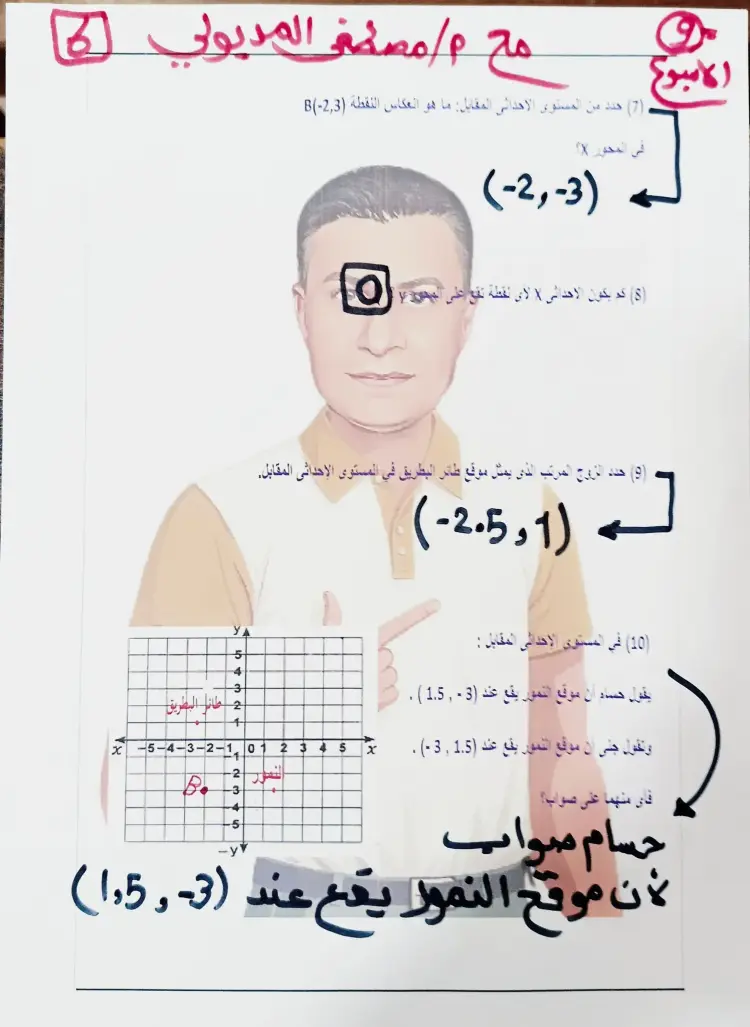 الاسبوع 9
مع م/مصطفى المديولي 6
(7) حدد من المستوى الاحداثى المقابل: ما هو انعكاس النقطة B(-2,3)
في المحور X؟
(-2, -3)
(8) كم يكون الاحداثى X لاى نقطة تقع على المحور y ؟
0
(9) حدد الزوج المرتب الذى يمثل موقع طائر البطريق في المستوى الاحداثى المقابل.
(-2.5, 1)
(10) في المستوى الاحداثى المقابل :
يقول حسام أن موقع النمور يقع عند (3 - , 1.5 ) .
وتقول جنى أن موقع النمور يقع عند (1.5 , 3 -) .
فأى منهما على صواب؟
حسام صواب
لأن موقع النمور يقع عند (1,5 , -3)
y
5
4
3
طائر البطريق 2
1
x -5 -4 -3 -2 -1 0 1 2 3 4 5 x
-1
-2 النمور
B -3
-4
-5
-y